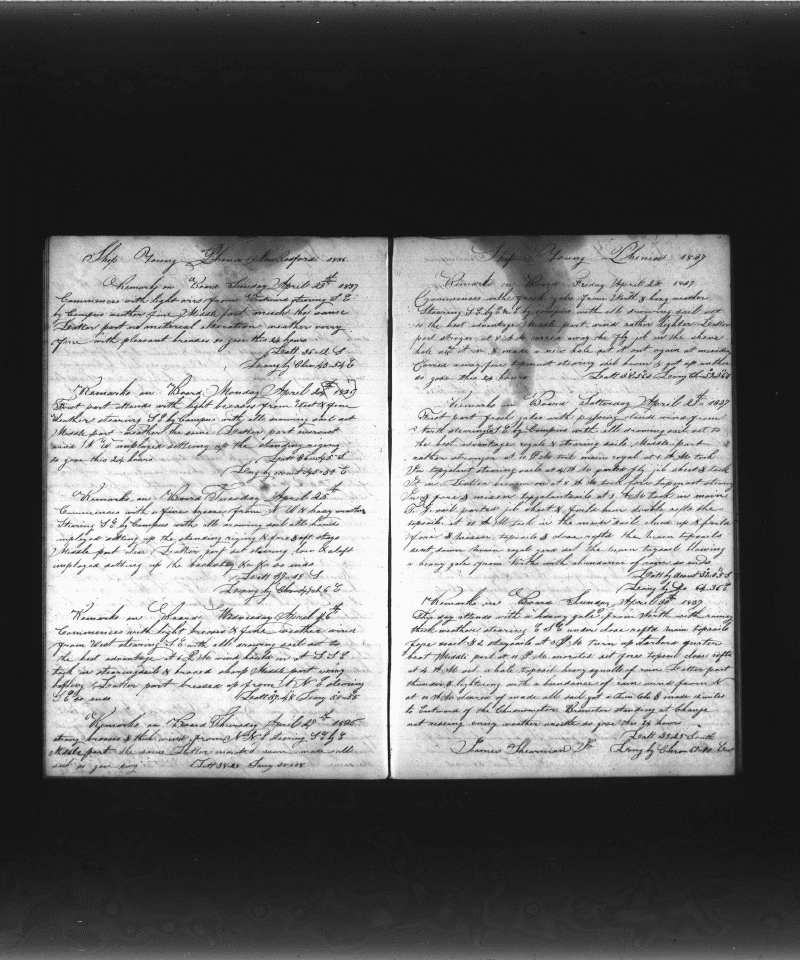 Ship Young Phenix New Bedford 1836
Remarks on Board Sunday April 23th 1837
Commences with light airs from Westward stearing S E
by Compass weather fine Middle part much the same
Latter part no meterial alteration weather very
fine with pleasant breeses so goes this 24 hours
Latt 36-11 S
Long by Chro 43-54 E
Remarks on Board Monday April 24th 1837
First part attends with light breeses from West & fine
Weather stearing S E by Compass with all drawing sail out
Middle part Weather the same Latter part
wind N W imployed setting up the standing rigging
so goes this 24 hours
Latt 36-45 S
Long by acount 45-50 E
Remarks on Board Tuesday April 25th
Commences with a fine breese from N W & hazy weather
Stearing S E by Compass with all drawing sail all hands
imployed setting up the standing rigging & fore & aft stays
Middle part clear Latter part set steering low & aloft
imployed setting up the backstays &c &c so ends
Latt 37-11 S
Long by Chro E
Remarks on Board Wednesday April 26th
Commences with light breeses & fine weather wind
from West stearing S E with all drawing sail set to
the best advantage at 6 P M wind hauls in at S S E
took in stearingsails & braced sharp Middle part wing
baffling Latter part breesed up from N N E stearing
S E so ends Latt 37-48 Long 50-55
Remarks on Board Thursday April 27th
strong breeses & thick wind from N stearing S E by E
Middle part the same Latter made all
sail so goes Latt 38-28 Long
Ship Young Phenix 1837
Remarks on Board Friday April 28 1837
Commences with fresh gales from North & hazy weather
Stearing S E by E by compass with all drawing sail out
to the best advantage Middle part wind rather lighter Latter
part stronger at 8 A M carried away the fly jib in the sheave
hole got it in & made a new hole got it out again at meridian
Carried away fore topmast stearing sail boom & got up another
so goes this 24 hours Latt 38-50 S Long
Remarks on Board Satturday April 29th 1837
First part fresh gales with passing clouds wind from
North stearing S E by Compass with all drawing sail set to
the best advantage royals & stearing sails Middle part
rather stronger at 10 P M took main royal at 2 A M took
in topgalant stearing sails at 4 A M parted fly jib sheet & took
It in Latter breeses on at 8 A M took fore topmast stearing
in & fore & misson topgalantsails at 9 A M took in main
T G sail parted jib sheet & furled here double refts the
topsails at 10 A M took in the main sail clued up & furled
fore & misson topsails & close refts the main topsails
sent down main royal yard out the main topsail blowing
a heavy gale from North with abundance of rain so ends
Latt by acount 38-5 S
Long by Do 61-36 E
Remarks on Board Sunday April 30th 1837
This day attends with a heavy gale from North with rainy
thick weather stearing E S E under close reft main topsails
fore sail & staysails at 2 P M turn up Larboard quarter
boat Middle part at 10 P M moderate set fore topsail close refts
at 4 A M set whole topsail being squalls of rain Latter part
thunder & lightning with a abundance of rain wind from N
at 10 A M cleared of made all sail got a Sun Ch & made
to Eastward of the Chronometer Barometer standing at Change
not seeing enny weather worth so goes the 24 hours
Latt 39-25 South
James Shearman Jr Long by Chrom East